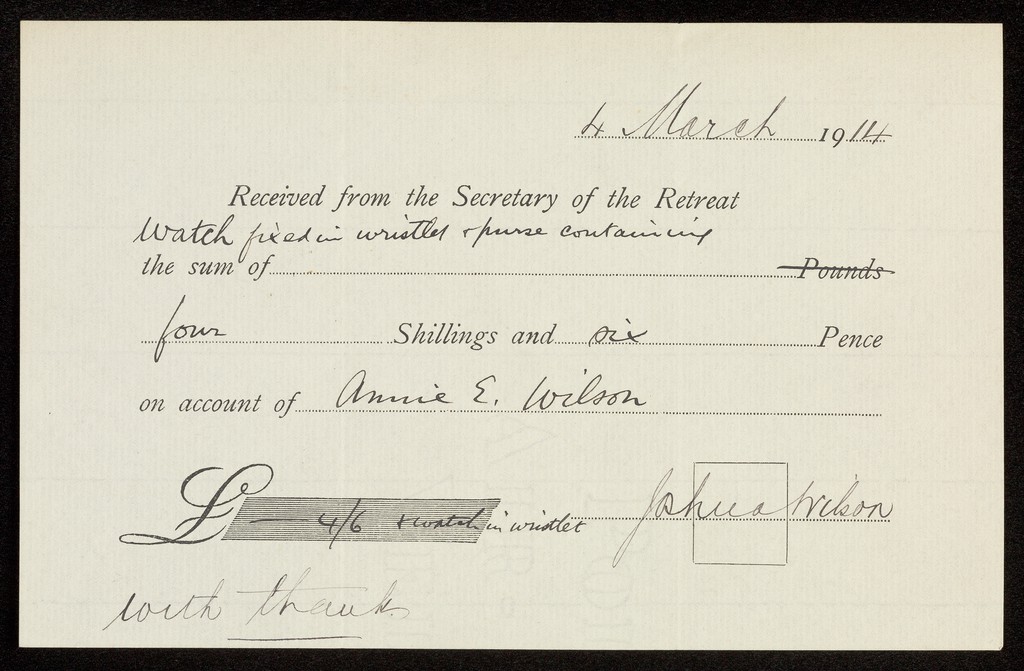 4 March 1914
Received from the Secretary of the Retreat
Watch fixed in wristlet & purse containing
the sum of Pounds
four Shillings and six Pence
on account of Annie E. Wilson
£ — 4/6 & watch in wristlet Joshua Wilson
with thanks